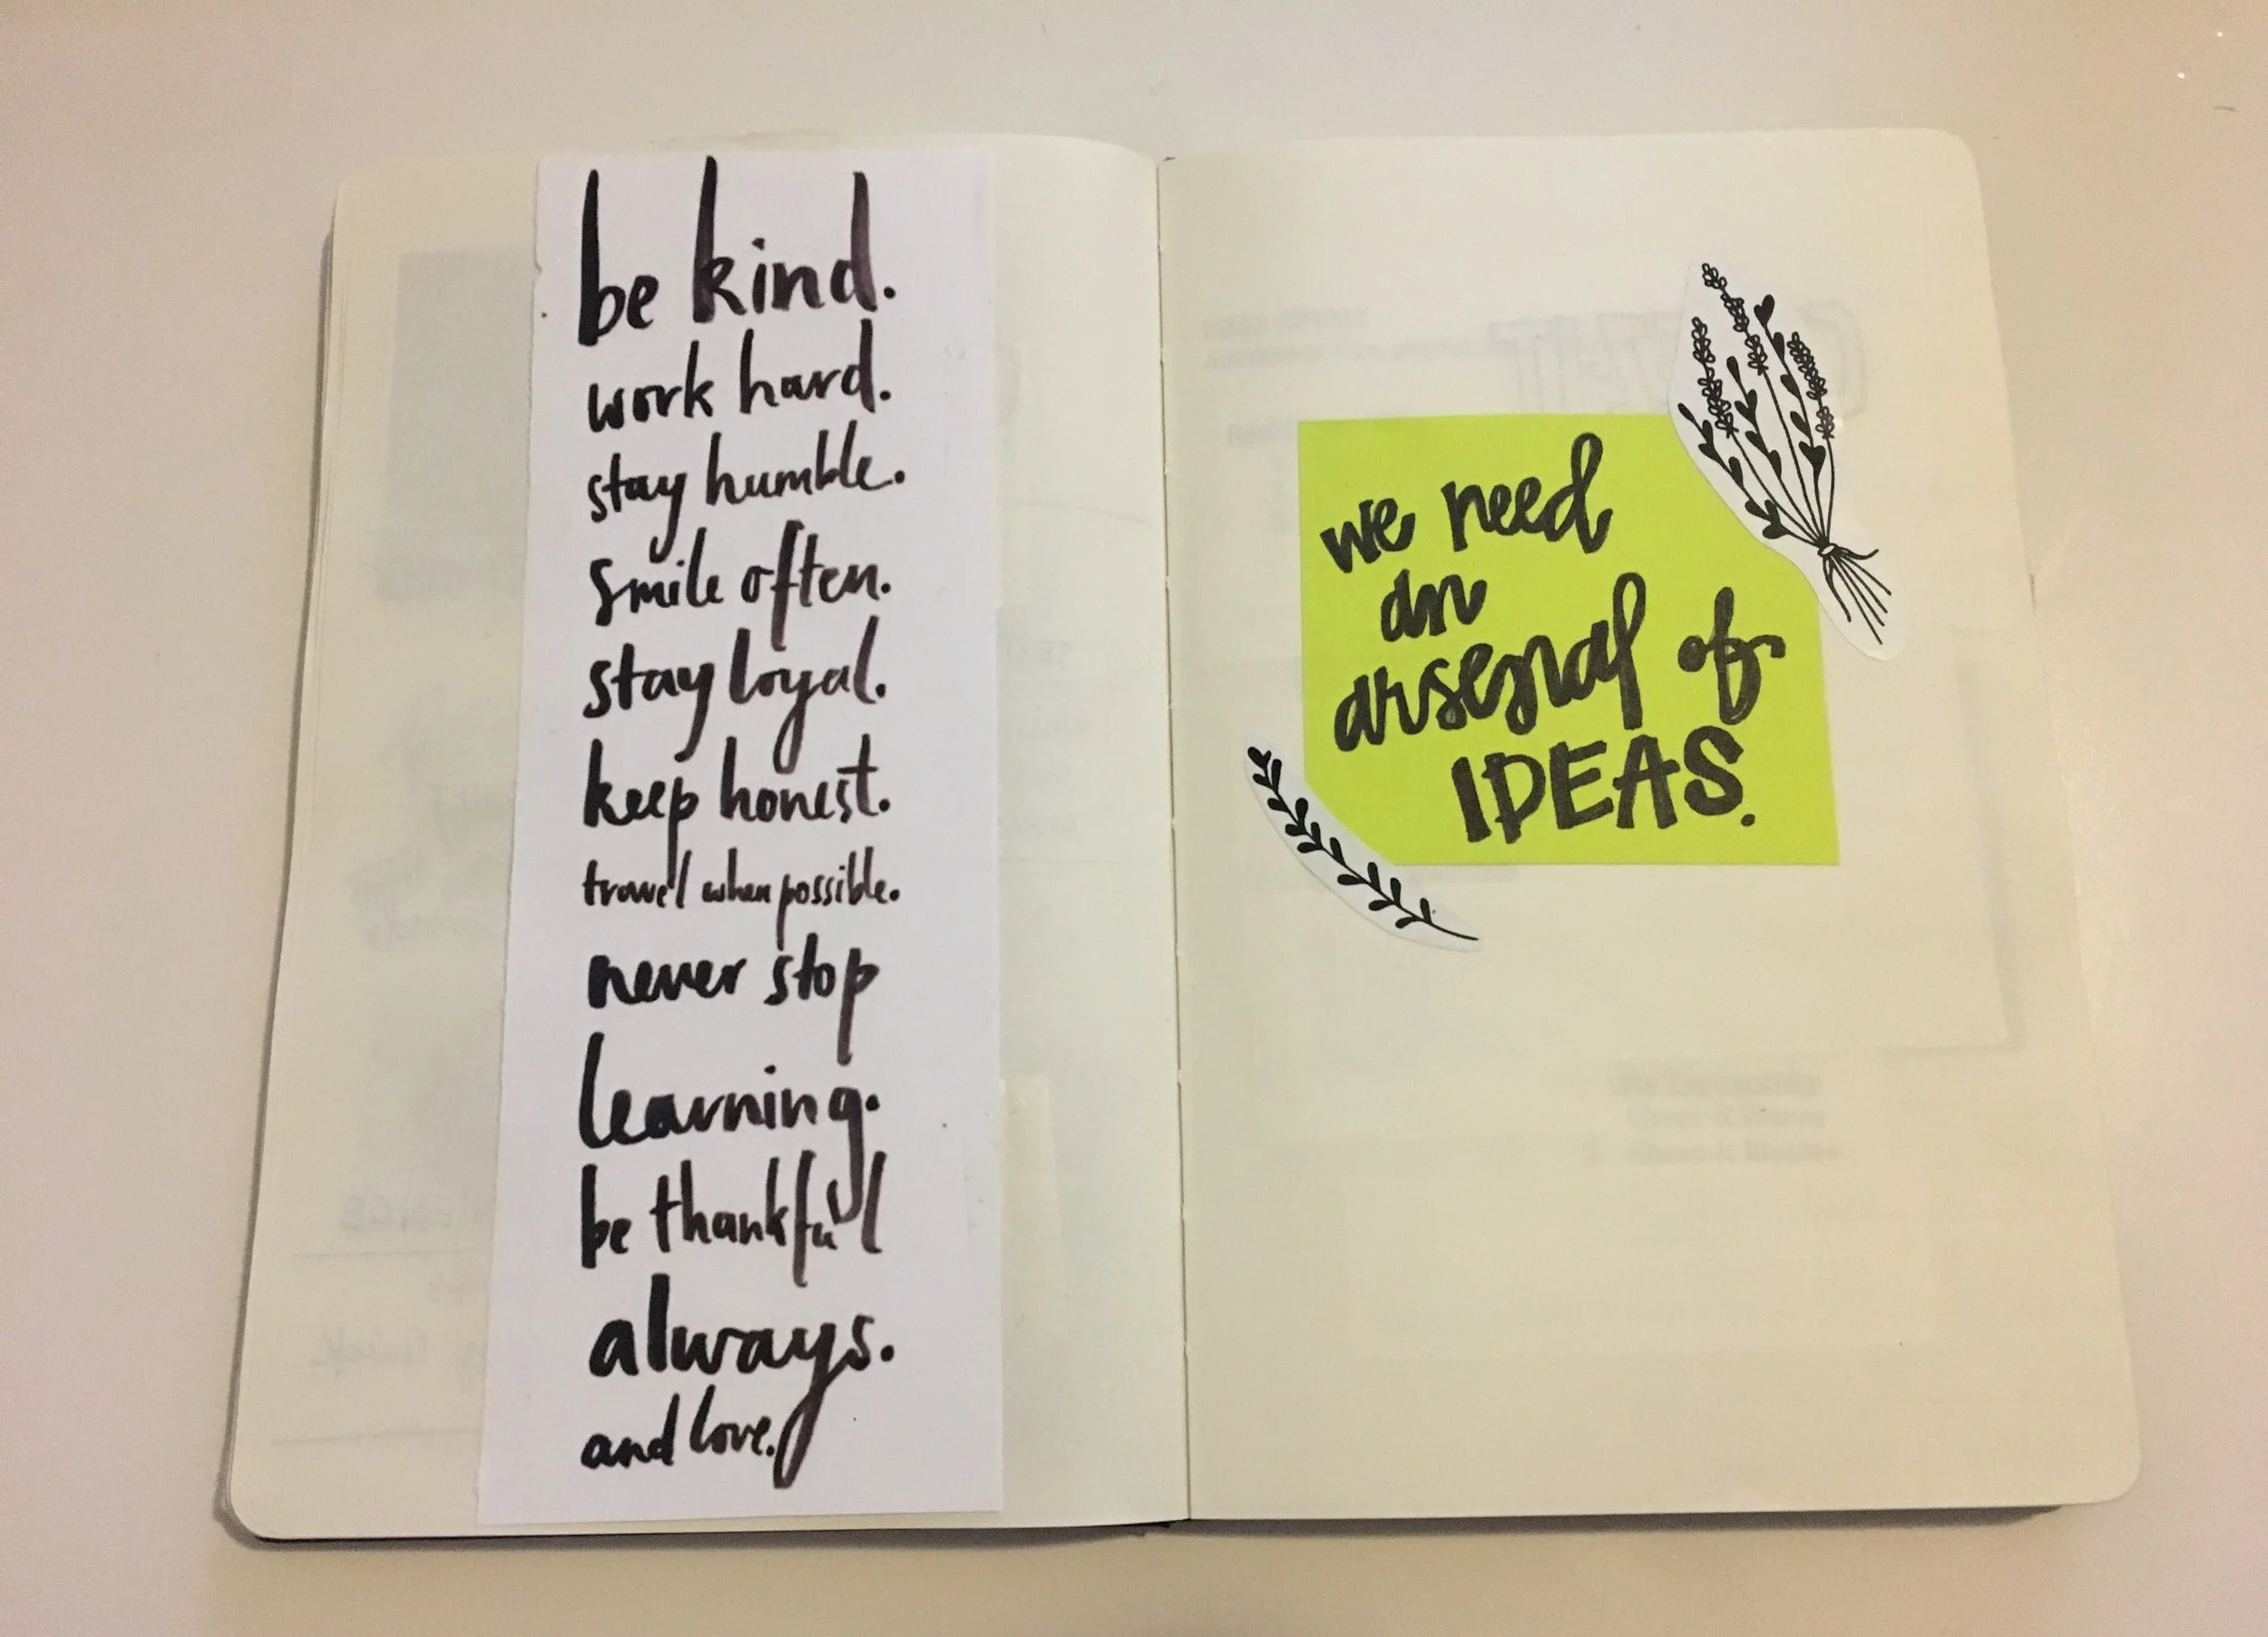 be kind.
work hard.
stay humble.
smile often.
stay loyal.
keep honest.
travel when possible.
never stop
learning.
be thankful
always.
and love.
we need
an
arsenal of
IDEAS.